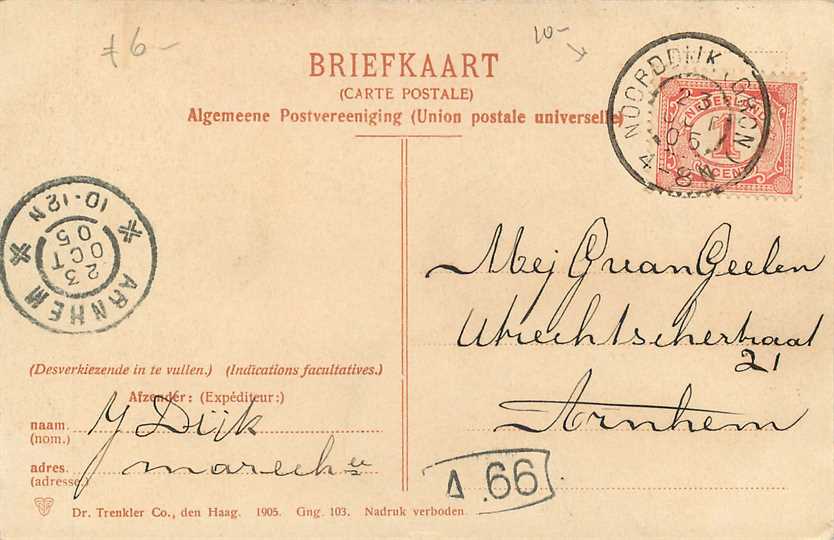 ≠ 6 –
10-
BRIEFKAART
(CARTE POSTALE)
Algemeene Postvereeniging (Union postale universelle)
NOORDDIJK (GRON)
23 OCT 05
4-8 N
NEDERLAND
1
CENT
10-12 N
23
OCT
05
ARNHEM
Mej G van Geelen
Utrechtschestraat
21
Arnhem
(Desverkiezende in te vullen.) (Indications facultatives.)
Afzender: (Expéditeur:)
naam. (nom.) J Dijk
adres. (adresse.) marechee
A 66
Dr. Trenkler Co., den Haag. 1905. Gng. 103. Nadruk verboden